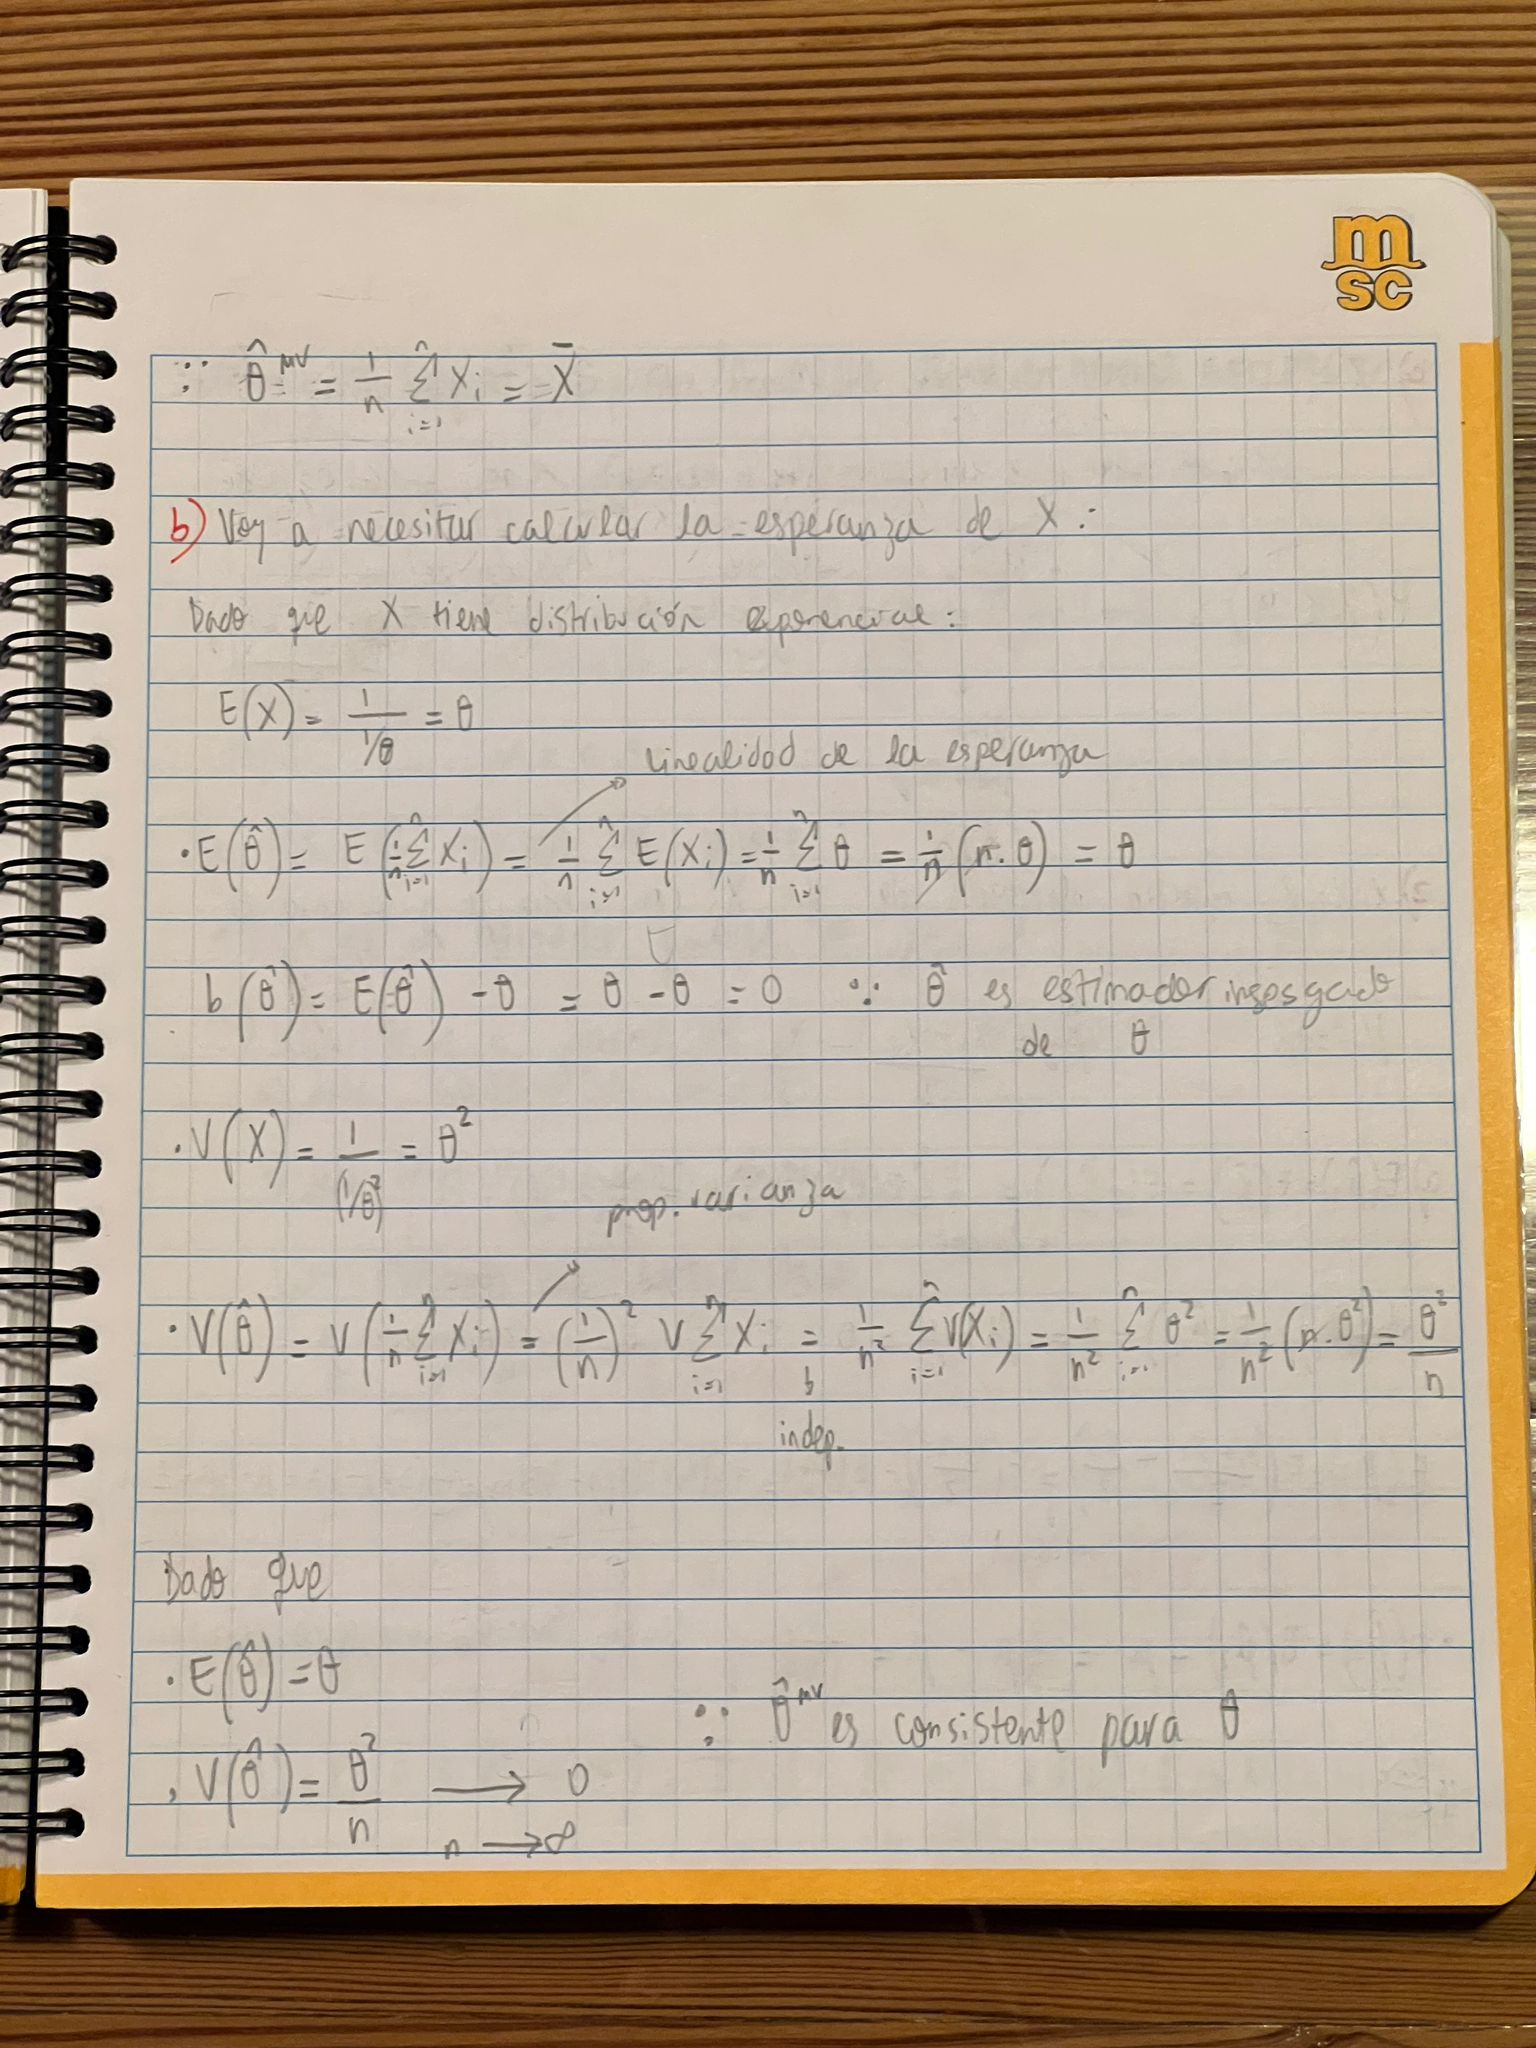 m
sc
∵ θ̂^MV = 1/n Σ_{i=1}^n Xi = X̄
b) Voy a necesitar calcular la esperanza de X:
Dado que X tiene distribución exponencial:
E(X) = 1/(1/θ) = θ
linealidad de la esperanza
· E(θ̂) = E(1/n Σ_{i=1}^n Xi) = 1/n Σ_{i=1}^n E(Xi) = 1/n Σ_{i=1}^n θ = 1/n (n·θ) = θ
b(θ̂) = E(θ̂) - θ = θ - θ = 0 ∵ θ̂ es estimador insesgado
de θ
· V(X) = 1/(1/θ)² = θ²
prop. varianza
· V(θ̂) = V(1/n Σ_{i=1}^n Xi) = (1/n)² V Σ_{i=1}^n Xi = 1/n² Σ_{i=1}^n V(Xi) = 1/n² Σ_{i=1}^n θ² = 1/n² (n·θ²) = θ²/n
indep.
Dado que
· E(θ̂) = θ
∵ θ̂^MV es consistente para θ
· V(θ̂) = θ²/n → 0
n → ∞